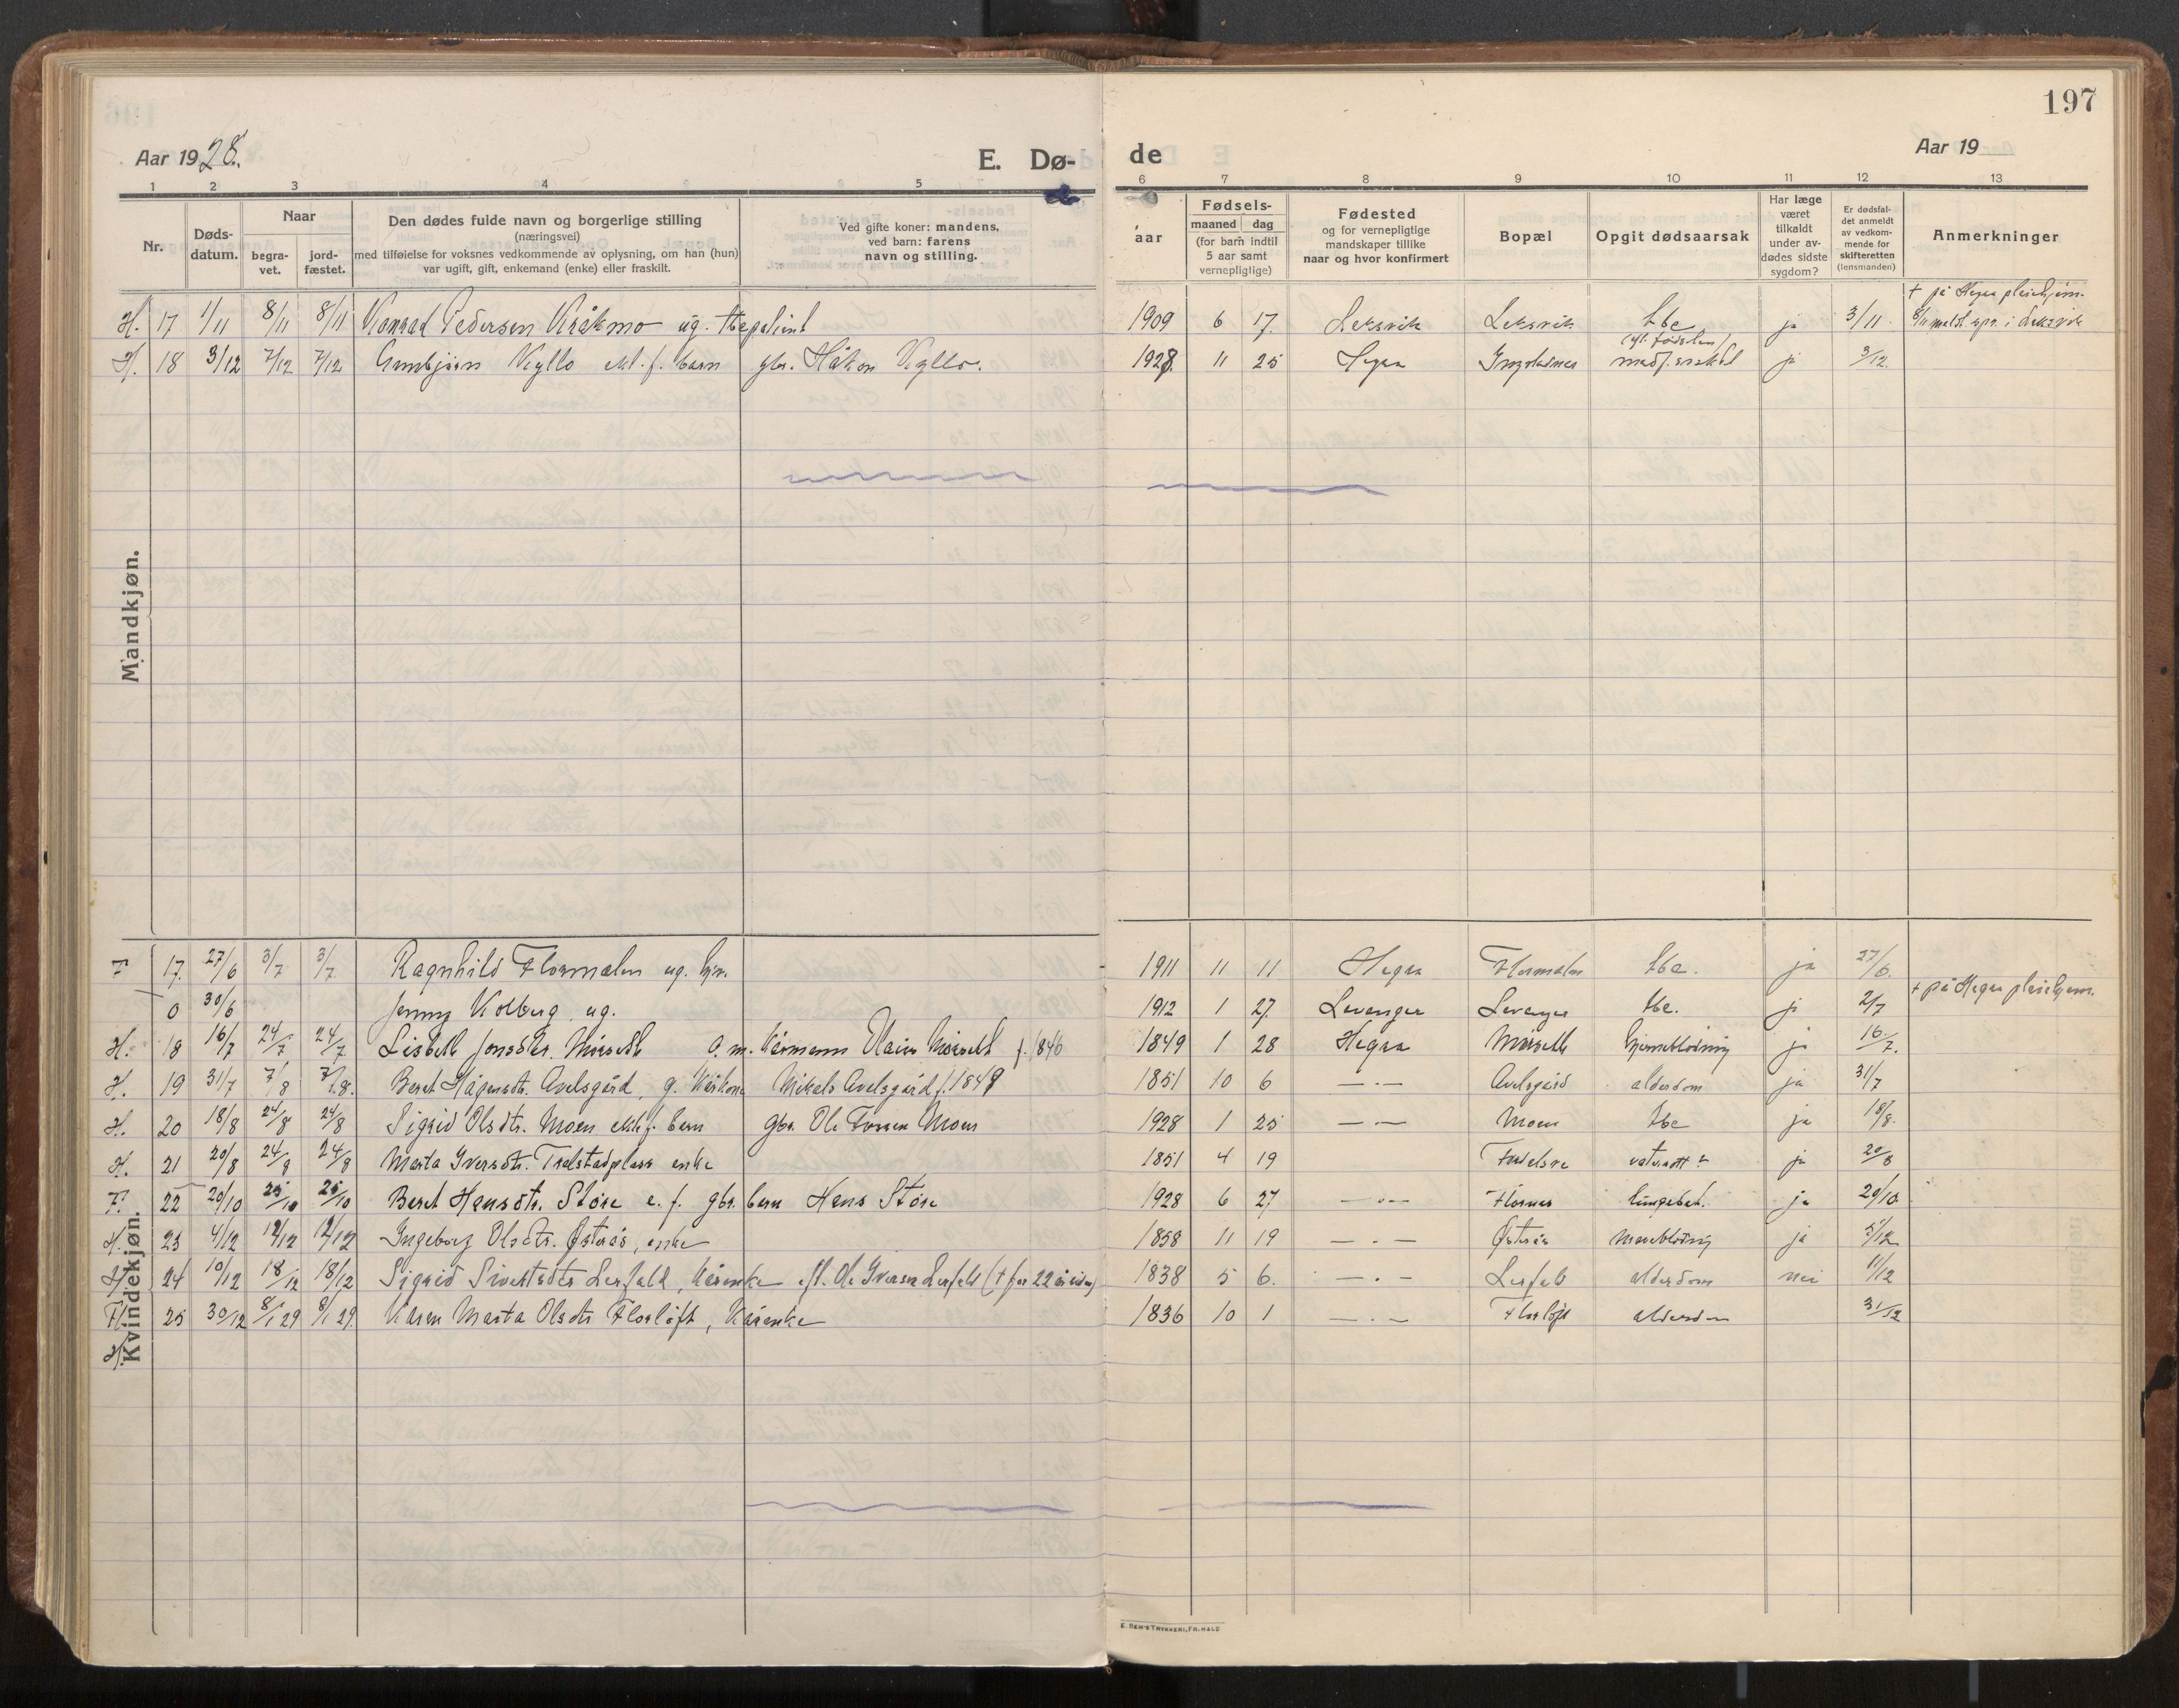 197
Aar 1928.
E. Dø-
de
Aar 19
1 2 3 4 5 6 7 8 9 10 11 12 13
Nr.
Døds-
datum.
Naar
begra-
vet.
jord-
fæstet.
Den dødes fulde navn og borgerlige stilling
(næringsvei)
med tilføielse for voksnes vedkommende av oplysning, om han (hun)
var ugift, gift, enkemand (enke) eller fraskilt.
Ved gifte koner: mandens,
ved barn: farens
navn og stilling.
aar
Fødsels-
maaned dag
(for barn indtil
5 aar samt
vernepligtige)
Fødested
og for vernepligtige
mandskaper tillike
naar og hvor konfirmert
Bopæl
Opgit dødsaarsak
Har læge
været
tilkaldt
under av-
dødes sidste
sygdom?
Er dødsfal-
det anmeldt
av vedkom-
mende for
skifteretten
(lensmanden)
Anmerkninger
Mandkjøn.
H. 17 1/11 8/11 8/11 Konrad Pedersen Kråkmo ug. tbcpatient 1909 6 17. Leksvik Leksvik tbc ja 3/11 † på Hegra pleiehjem.
8/11 meldt spr. i Leksvik
H. 18 3/12 7/12 7/12 Gunbjørn Kyllo ekt. f. barn gbr. Håkon Kyllo. 1928. 11 25 Hegra Ingstadnes medf. svakhet ja 3/12.
Kvindekjøn.
F 17. 27/6 3/7 3/7 Ragnhild Flormælen ug. 1911 11 11 Hegra Flormælen tbc. ja 27/6.
0 30/6 Jenny Kolberg, ug. 1912 1 27. Levanger Levanger tbc. ja 2/7 † på Hegra pleiehjem.
H. 18 16/7 24/7 24/7 Lisbeth Jonsdtr. Mørseth g. m. kårmann Mørseth f. 1846 1849 1 28 Hegra Mørseth hjerneblødning ja 16/7.
H. 19 31/7 7/8 7/8. Beret Hågensdtr. Avelsgård, g. kårkone Mikals Avelsgård f. 1849 1851 10 6 — . — Avelsgård alderdom ja 31/7
H. 20 18/8 24/8 24/8 Sigrid Olsdtr. Moen ekt f. barn gbr. Ole Moen 1928 1 25 — . — Moen tbc ja 18/8.
H. 21 20/8 24/8 24/8 Marta Iversdtr. enke 1851 4 19 ja 20/8
F. 22 20/10 25/10 25/10 Beret Hansdtr. Støre e. f. gbr. barn Hans Støre 1928 6 27 — . — Flornes lungebet. ja 20/10
H. 23 4/12 12/12 12/12 Ingeborg Olsdtr. Østerås, enke 1858 11 19 — . — Østerås ja 5/12
H. 24 10/12 18/12 18/12 Sigrid Sivertsdtr Lerfald, kårenke eft. Ole Iversen Lerfald († for 22 år siden) 1838 5 6. — . — Lerfald alderdom nei 11/12
Fl. 25 30/12 8/1 29 8/1 29. Karen Marta Olsdtr Florløft, kårenke 1836 10 1 — . — Florløft alderdom 31/12
H.
E. SEM'S TRYKKERI, FR.HALD